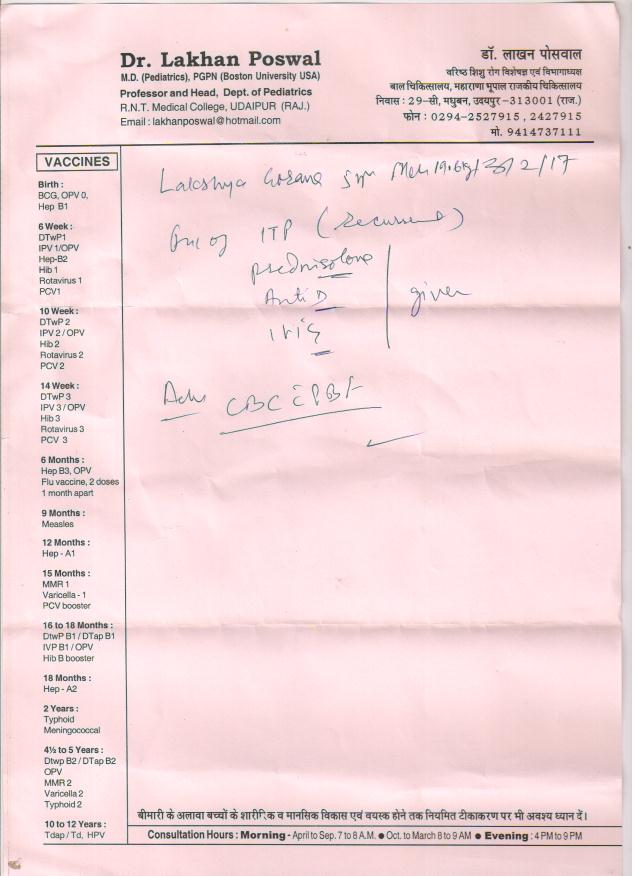 Dr. Lakhan Poswal
M.D. (Pediatrics), PGPN (Boston University USA)
Professor and Head, Dept. of Pediatrics
R.N.T. Medical College, UDAIPUR (RAJ.)
Email : lakhanposwal@hotmail.com
डॉ. लाखन पोसवाल
वरिष्ठ शिशु रोग विशेषज्ञ एवं विभागाध्यक्ष
बाल चिकित्सालय, महाराणा भूपाल राजकीय चिकित्सालय
निवास : 29-सी, मधुबन, उदयपुर-313001 (राज.)
फोन : 0294-2527915, 2427915
मो. 9414737111
VACCINES
Birth :
BCG, OPV 0,
Hep B1
6 Week :
DTwP1
IPV 1/OPV
Hep-B2
Hib 1
Rotavirus 1
PCV1
10 Week :
DTwP 2
IPV 2 / OPV
Hib 2
Rotavirus 2
PCV 2
14 Week :
DTwP 3
IPV 3 / OPV
Hib 3
Rotavirus 3
PCV 3
6 Months :
Hep B3, OPV
Flu vaccine, 2 doses
1 month apart
9 Months :
Measles
12 Months :
Hep - A1
15 Months :
MMR 1
Varicella - 1
PCV booster
16 to 18 Months :
DtwP B1 / DTap B1
IVP B1 / OPV
Hib B booster
18 Months :
Hep - A2
2 Years :
Typhoid
Meningococcal
4½ to 5 Years :
Dtwp B2 / DTap B2
OPV
MMR 2
Varicella 2
Typhoid 2
10 to 12 Years :
Tdap / Td, HPV
Lakshya 19.6kg 2/17
of ITP
prednisolone
Anti D given
IVIG
Adv CBC c̄ PBF
बीमारी के अलावा बच्चों के शारीरिक व मानसिक विकास एवं वयस्क होने तक नियमित टीकाकरण पर भी अवश्य ध्यान दें।
Consultation Hours : Morning - April to Sep. 7 to 8 A.M. ● Oct. to March 8 to 9 AM ● Evening : 4 PM to 9 PM